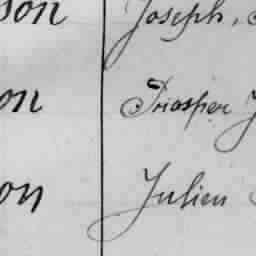 son Joseph,
on Prosper J
on Julien